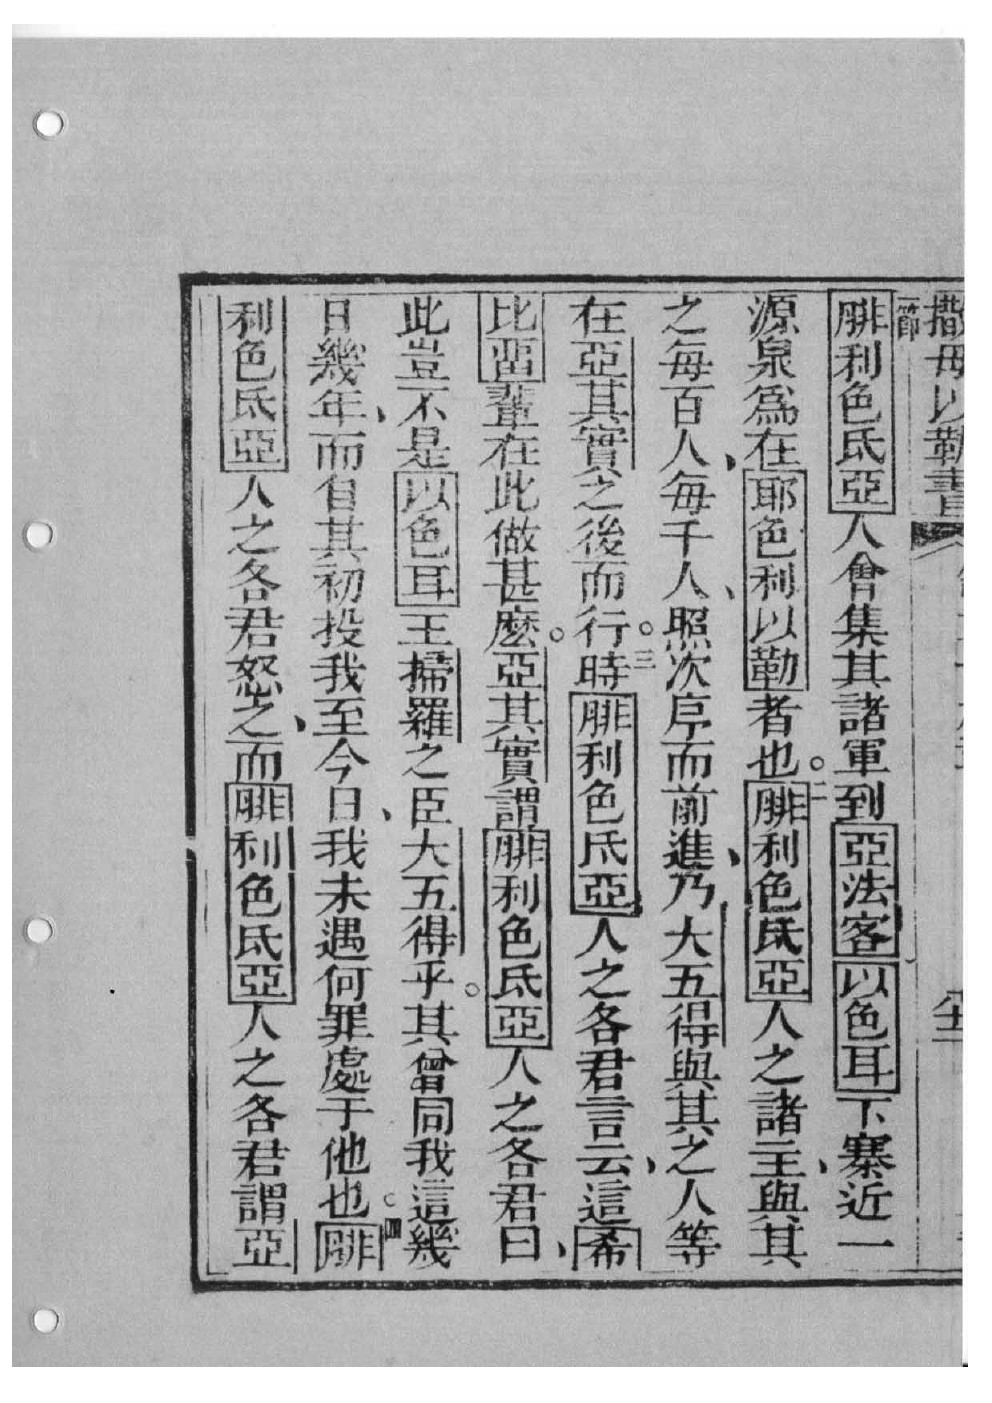 撒母以勒書
一節
腓利色氐亞人會集其諸軍到亞法客以色耳下寨近一
源泉爲在耶色利以勒者也。二腓利色氐亞人之諸主、與其
之每百人、每千人、照次序而前進、乃大五得與其之人等
在亞其實之後而行。三時腓利色氐亞人之各君言云、這希
比畱輩在此做甚麽。亞其實謂腓利色氐亞人之各君曰、
此豈不是以色耳王掃羅之臣大五得乎。其曾同我這幾
日幾年、而自其初投我至今日、我未遇何罪處于他也。四腓
利色氐亞人之各君怒之、而腓利色氐亞人之各君謂亞